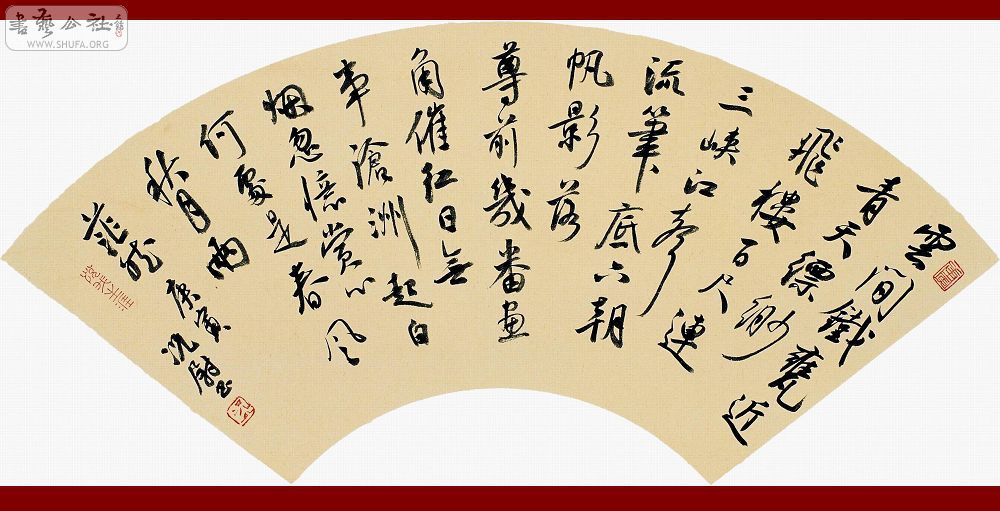 書藝公社
WWW.SHUFA.ORG
雲間鐵甕近
青天縹緲
飛樓百尺連
三峽江聲
流筆底六朝
帆影落
尊前幾番畫
角催紅日無
事滄洲起白
烟忽憶賞心
何處是春風
秋月兩
茫然庚寅況尉書